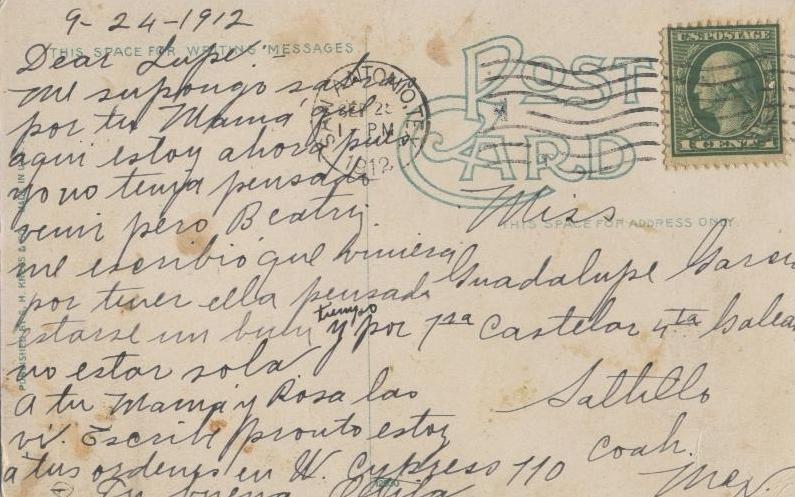 9-24-1912
THIS SPACE FOR WRITING MESSAGES
Dear Lupe:-
Me supongo sabras
por tu Mamá q'el
aqui estoy ahora pues
yo no tenia pensado
venir pero Beatriz
me escribió que viniera
por tener ella pensado
estarse un buen tiempo y por
no estar sola
A tu Mamá y Rosa las
vi. Escribe pronto estoy
a tus ordenes en W. Cypress 110
Tu buena
SAN ANTONIO, TEX
SEP 25
1 PM
1912
POST CARD
U.S. POSTAGE
1 CENT 1
THIS SPACE FOR ADDRESS ONLY.
Miss
Guadalupe Garcia
1ra Castelar 4ta
Saltillo
Coah.
Mex.